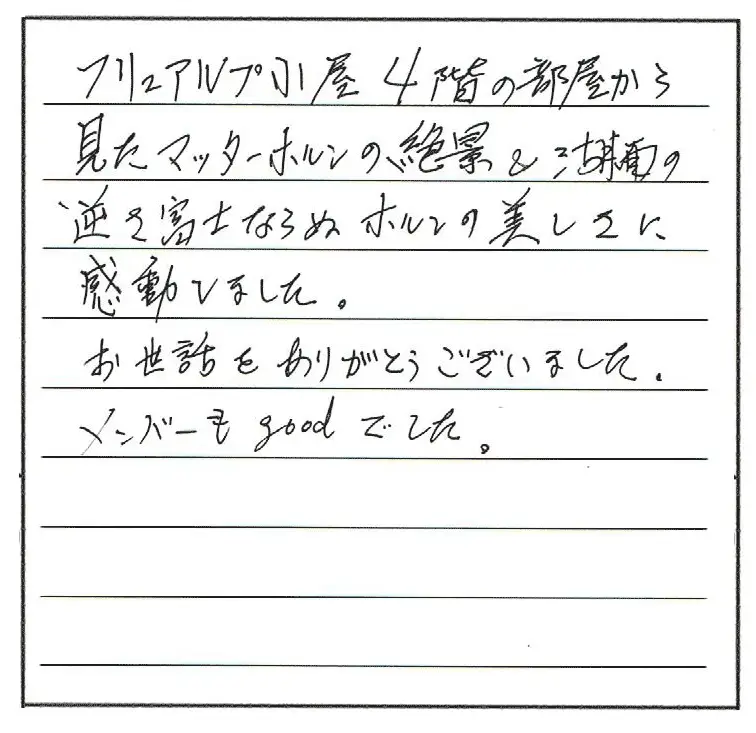 フリュアルプ小屋 4階の部屋から
見たマッターホルンの絶景&湖面の
逆さ富士ならぬホルンの美しさに
感動しました。
お世話をありがとうございました。
メンバーも goodでした。